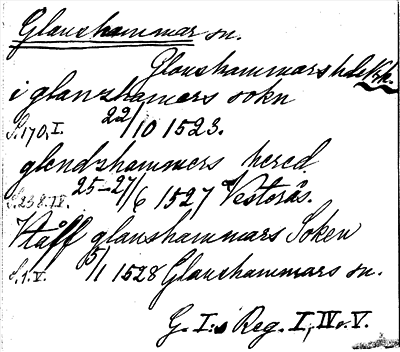 Glanshammar sn.
Glanshammars hd
i glanzhamers sokn
S. 170, I. 22/10 1523.
glendzhammers hered
S. 238. IV. 25-27/6 1527 Vesterås.
Utåff glanshammars Soken
S. 1. V. 5/1 1528 Glanshammars sn.
G. I:s Reg. I, IV o. V.